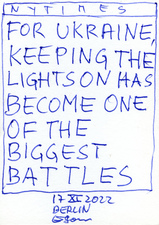 NYTIMES
FOR UKRAINE,
KEEPING THE
LIGHTS ON HAS
BECOME ONE
OF THE
BIGGEST
BATTLES
17 XI 2022
BERLIN